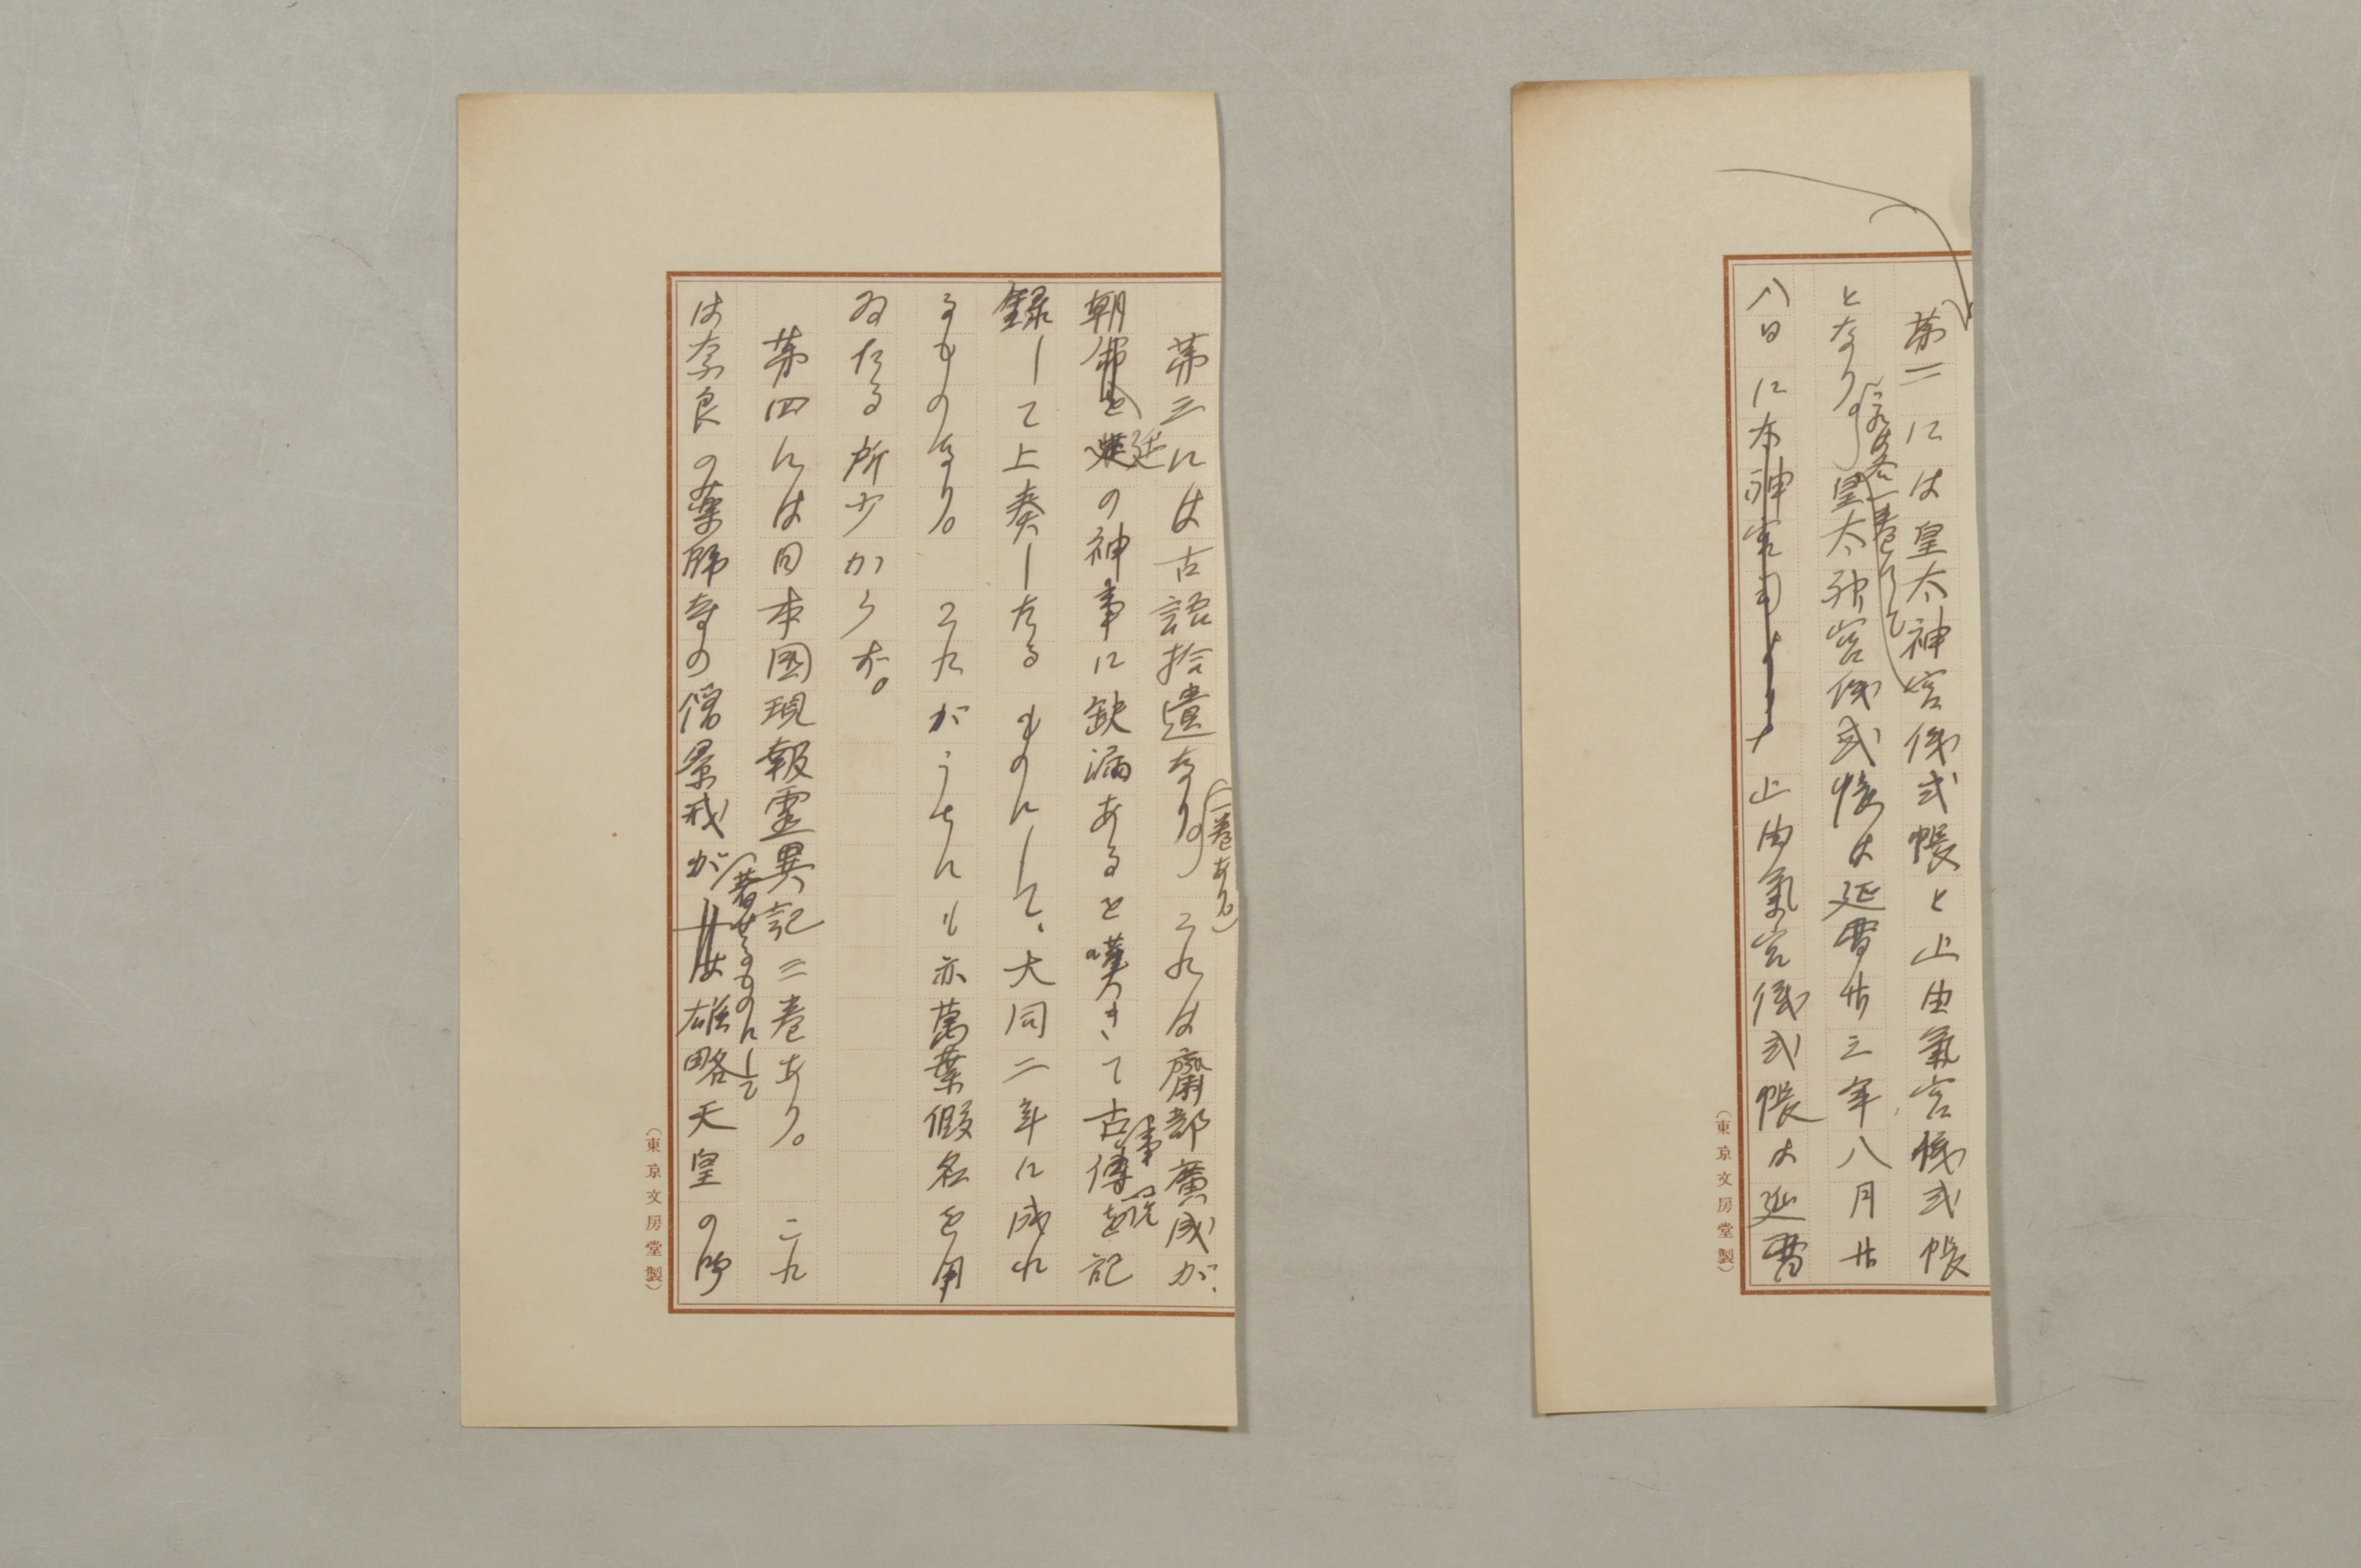 第二には皇太神宮儀式帳と止由氣宮儀式帳
となり。皇太神宮儀式帳は延暦廿三年八月廿
各一巻にして
八日に
止由氣宮儀式帳は延暦
(東京文房堂製)
第三には古語拾遺なり。これは齋部廣成が、
(一巻あり。)
朝廷の神事に缺漏あると嘆きて古傳を記
事
説
録して上奏したるものにして、大同二年に成れ
るものなり。これがうちにも亦萬葉假名を用
ゐたる所少からず。
第四には日本國現報靈異記三巻あり。これ
は奈良の藥師寺の僧景戒が
著せるものにして
雄略天皇の時
(東京文房堂製)